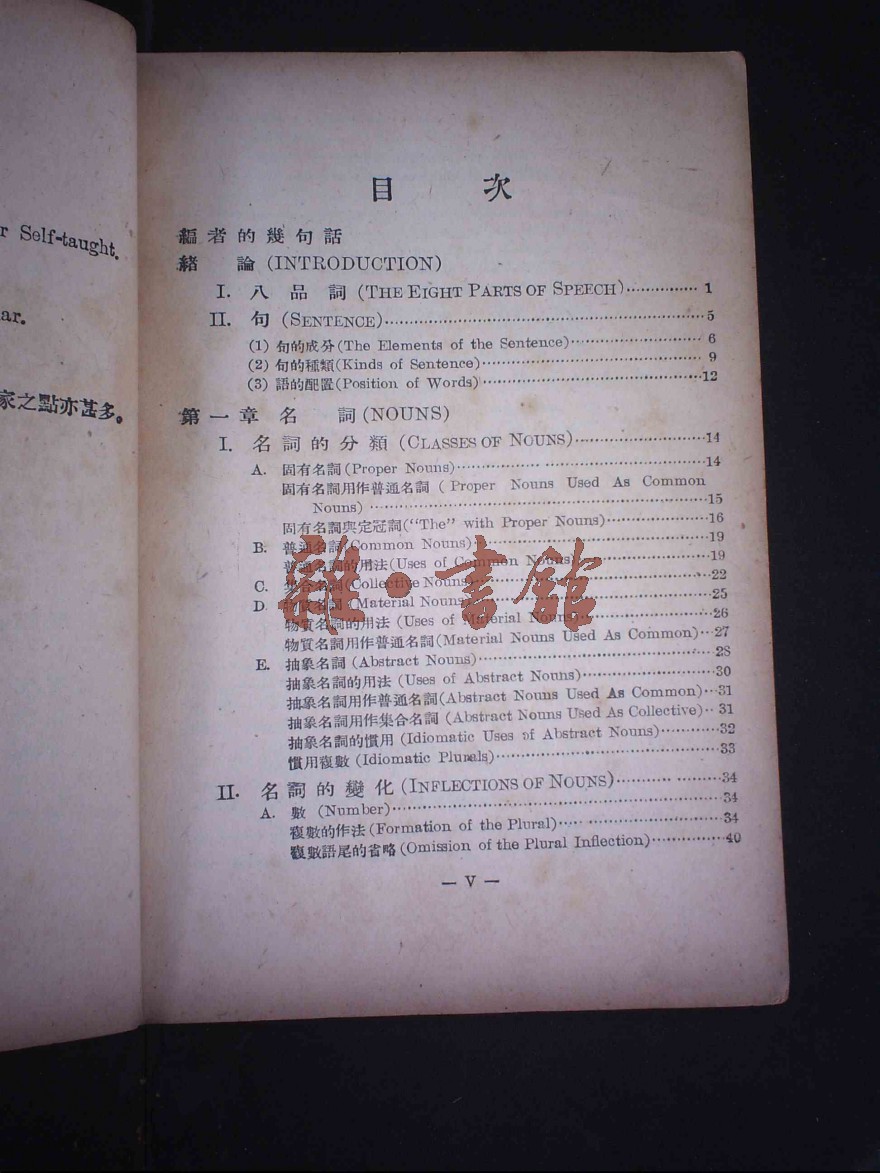 r Self-taught.
ar.
家之點亦甚多。
目 次
編者的幾句話
緒 論 (INTRODUCTION)
I. 八 品 詞 (THE EIGHT PARTS OF SPEECH) 1
II. 句 (SENTENCE) 5
(1) 句的成分 (The Elements of the Sentence) 6
(2) 句的種類 (Kinds of Sentence) 9
(3) 語的配置 (Position of Words) 12
第一章 名 詞 (NOUNS)
I. 名詞的分類 (CLASSES OF NOUNS) 14
A. 固有名詞 (Proper Nouns) 14
固有名詞用作普通名詞 (Proper Nouns Used As Common
Nouns) 15
固有名詞與定冠詞 ("The" with Proper Nouns) 16
B. 普通名詞 (Common Nouns) 19
普通名詞的用法 (Uses of Common Nouns) 19
C. 集合名詞 (Collective Nouns) 22
D. 物質名詞 (Material Nouns) 25
物質名詞的用法 (Uses of Material Nouns) 26
物質名詞用作普通名詞 (Material Nouns Used As Common) 27
E. 抽象名詞 (Abstract Nouns) 28
抽象名詞的用法 (Uses of Abstract Nouns) 30
抽象名詞用作普通名詞 (Abstract Nouns Used As Common) 31
抽象名詞用作集合名詞 (Abstract Nouns Used As Collective) 31
抽象名詞的慣用 (Idiomatic Uses of Abstract Nouns) 32
慣用複數 (Idiomatic Plurals) 33
II. 名詞的變化 (INFLECTIONS OF NOUNS) 34
A. 數 (Number) 34
複數的作法 (Formation of the Plural) 34
複數語尾的省略 (Omission of the Plural Inflection) 40
— V —
雜·書館